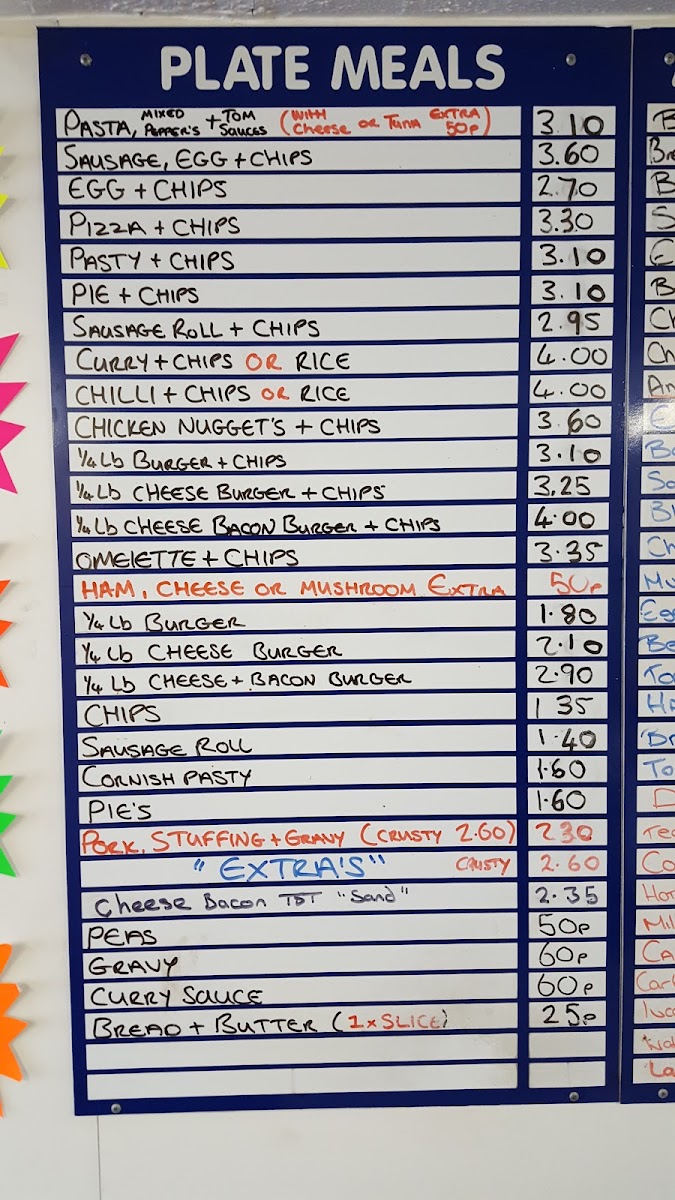 PLATE MEALS
PASTA, MIXED PEPPER'S + TOM SAUCES (WITH Cheese OR TUNA EXTRA 50p) 3.10
SAUSAGE, EGG + CHIPS 3.60
EGG + CHIPS 2.70
PIZZA + CHIPS 3.30
PASTY + CHIPS 3.10
PIE + CHIPS 3.10
SAUSAGE ROLL + CHIPS 2.95
CURRY + CHIPS OR RICE 4.00
CHILLI + CHIPS OR RICE 4.00
CHICKEN NUGGET'S + CHIPS 3.60
1/4 Lb BURGER + CHIPS 3.10
1/4 Lb CHEESE BURGER + CHIPS 3.25
1/4 Lb CHEESE BACON BURGER + CHIPS 4.00
OMELETTE + CHIPS 3.35
HAM, CHEESE OR MUSHROOM EXTRA 50p
1/4 Lb BURGER 1.80
1/4 Lb CHEESE BURGER 2.10
1/4 Lb CHEESE + BACON BURGER 2.90
CHIPS 1 35
SAUSAGE ROLL 1.40
CORNISH PASTY 1.60
PIE'S 1.60
PORK, STUFFING + GRAVY (CRUSTY 2.60) 2 30
"EXTRA'S" CRUSTY 2.60
Cheese Bacon TST "Sand" 2.35
PEAS 50p
GRAVY 60p
CURRY SAUCE 60p
BREAD + BUTTER (1 x SLICE) 25p